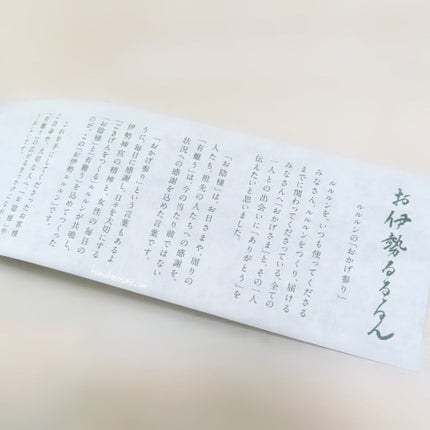 お伊勢るるるん
ルルルンの「おかげ参り」
ルルルンを、いつも使ってくださる
みなさん、ルルルンをつくり、届ける
までに関わってくださっている、全ての
みなさんへ「おかげさまと、その一人
一人との出会いに「ありがとう」を
伝えたいと思いました。
「お陰様」は、お日さまや、周りの
人たち、祖先の人たちへの感謝を。
「有難う」は、今の当たり前ではない
状況への感謝を込めた言葉です。
「おかげ参り」という言葉もあるよ
うに、毎日に感謝し、日々を大切にする
伊勢神宮の精神と、女性の毎日の
「ごきげんをつくる」ルルルンが共鳴し、
「お陰様」と「有難う」を込めてつくった
のが、この「お伊勢ルルルン」です。